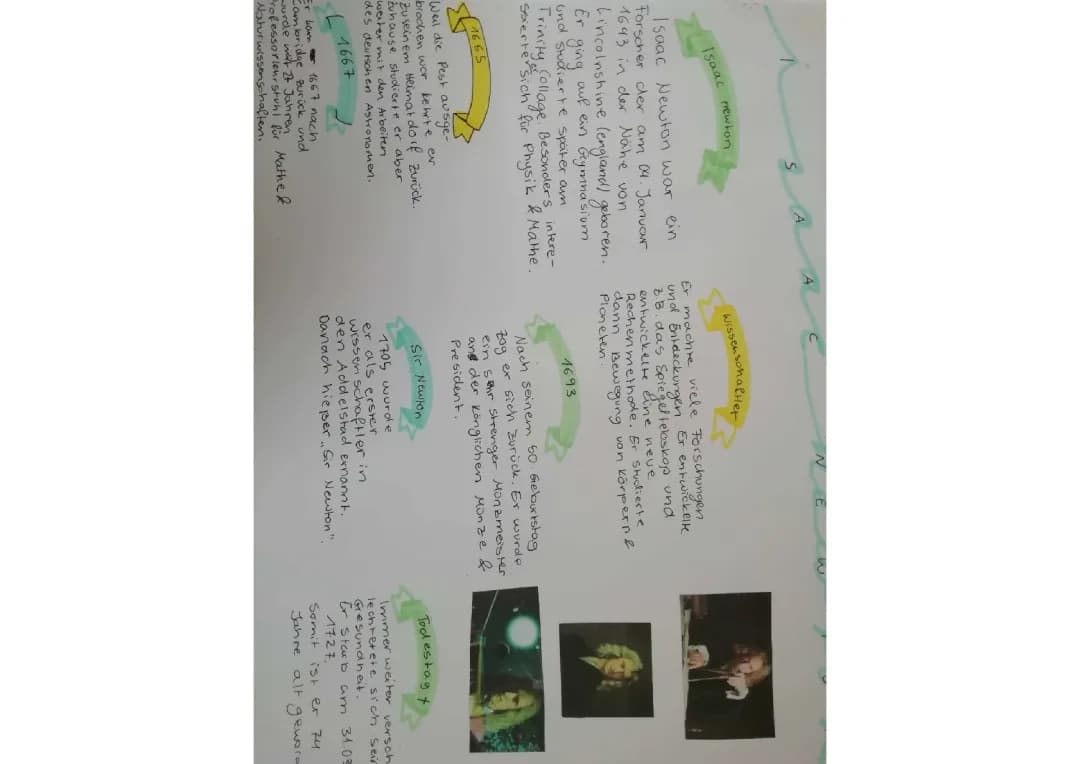 ISAAC NEWTON
Isaac newton
Isaac Newton war ein
Forscher der am 04. Januar
1693 in der Nähe von
Lincolnshine (england) geboren.
Er ging auf ein Gymnasium
und studierte später am
Trinity Collage. Besonders intere-
sierte er sich für Physik & Mathe.
1665
Weil die Pest ausge-
brochen war kehrte er
zu seinem Heimatdorf zurück.
zuhause studierte er aber
weiter mit den Arbeiten
des deutschen Astronomen.
1667
Er kam 1667 nach
Cambridge zurück und
wurde mit 27 Jahren
Professor lehrstuhl für Mathe &
Naturwissenschaften.
Wissenschaftler
Er machte viele Forschungen
und Entdeckungen. Er entwickelte
z.B. das Spiegelteleskop und
entwickelte eine neue
Rechenmethode. Er studierte
dann Bewegung von Körpern &
Planeten.
1693
Nach seinem 50 Geburtstag
zog er sich zurück. Er wurde
ein sehr strenger Münzmeister
an der königlichen Münze &
President.
Sir Newton
1705 wurde
er als erster
Wissenschaftler in
den Addelstad ernannt.
Danach hieß er „Sir Newton".
Todestag †
Immer weiter versch
lechterte sich sein
Gesundheit.
Er starb am 31.03
1727.
Somit ist er 74
Jahre alt geword